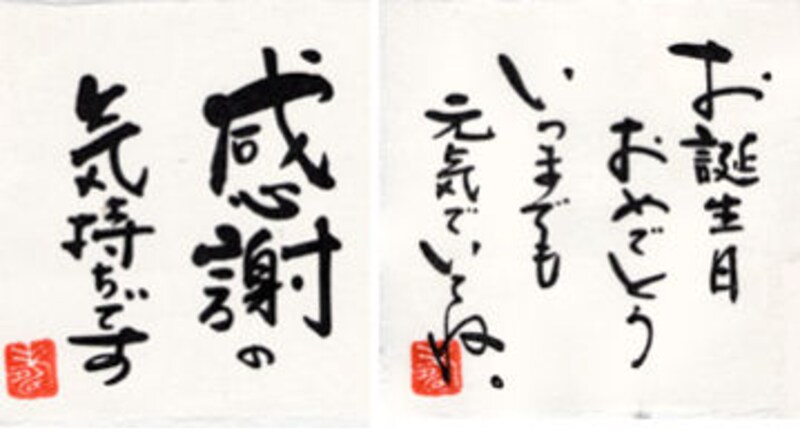 感謝の
気持ちです
お誕生日
おめでとう
いつまでも
元気でいてね。